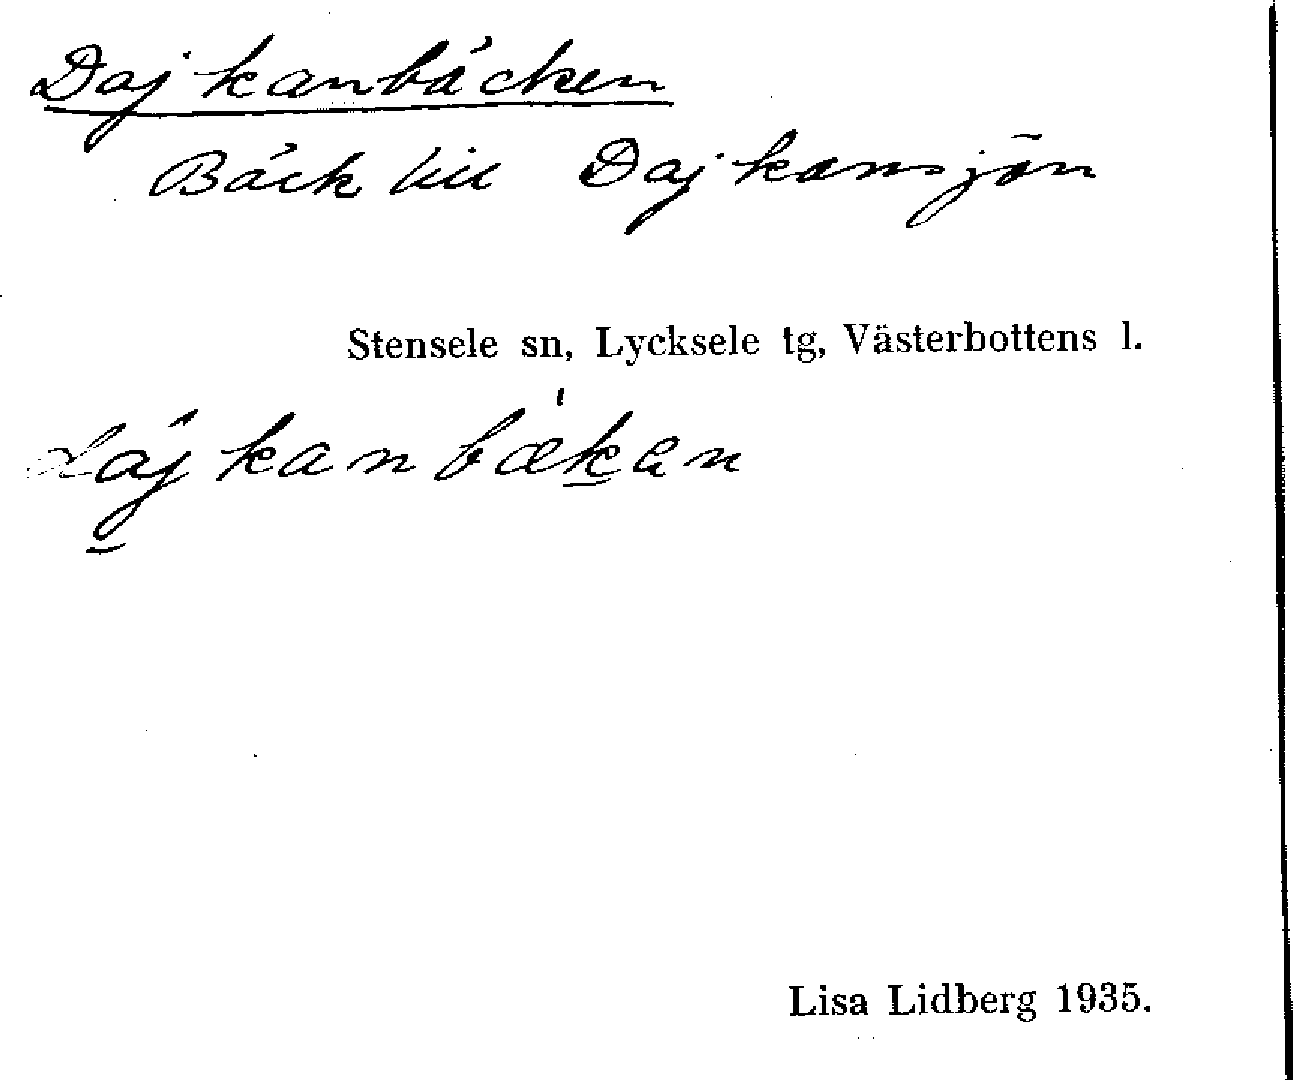 Dajkanbäcken
Bäck till Dajkansjön
Stensele sn, Lycksele tg, Västerbottens l.
dajkanbækan
Lisa Lidberg 1935.